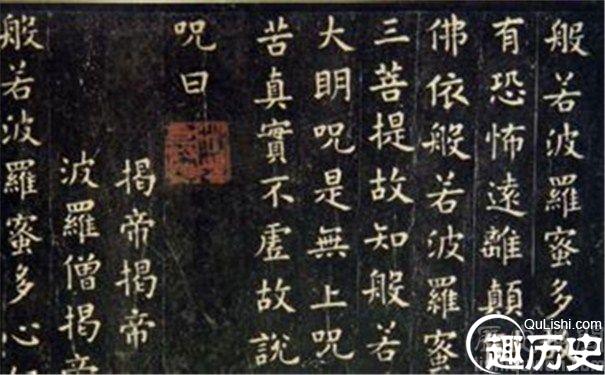 般若波羅蜜多
有恐怖遠離顛
佛依般若波羅蜜
三菩提故知般若
大明呪是無上呪
苦真實不虛故說
呪曰
揭帝揭帝
波羅僧揭帝
般若波羅蜜多心
QuLishi.com
趣历史